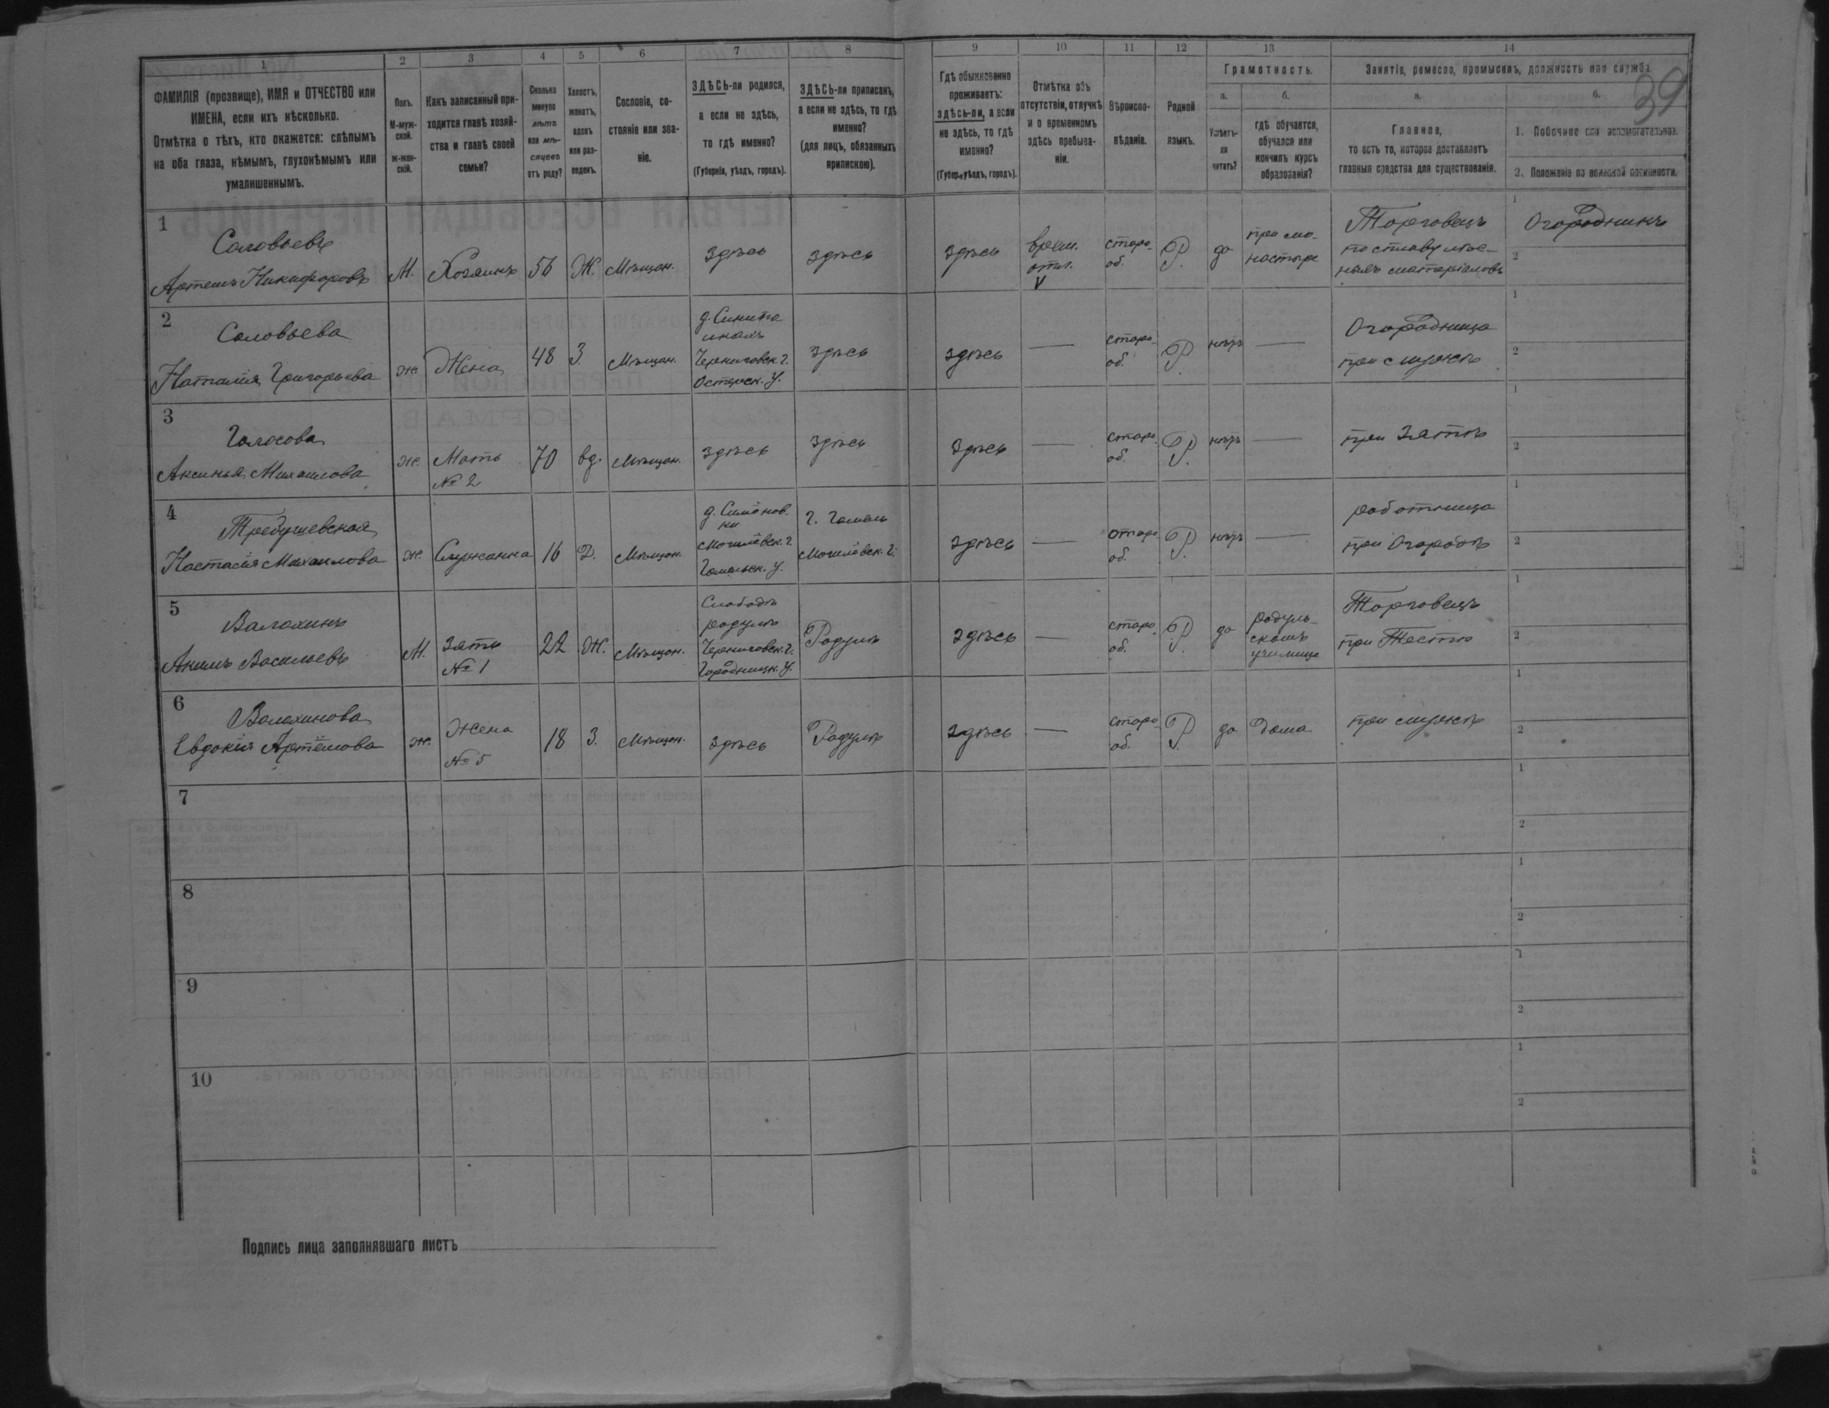 39
1 2 3 4 5 6 7 8 9 10 11 12 13 14
ФАМИЛІЯ (прозвище), ИМЯ и ОТЧЕСТВО или
ИМЕНА, если ихъ нѣсколько.
Отмѣтка о тѣхъ, кто окажется: слѣпымъ
на оба глаза, нѣмымъ, глухонѣмымъ или
умалишеннымъ.
Полъ.
М-муж-
ской.
ж-жен-
скій.
Какъ записанный при-
ходится главѣ хозяй-
ства и главѣ своей
семьи?
Сколько
минуло
лѣтъ
или мѣ-
сяцевъ
отъ роду?
Холостъ,
женатъ,
вдовъ
или раз-
веденъ.
Сословіе, со-
стояніе или зва-
ніе.
ЗДѢСЬ-ли родился,
а если не здѣсь,
то гдѣ именно?
(Губернія, уѣздъ, городъ).
ЗДѢСЬ-ли приписанъ,
а если не здѣсь, то гдѣ
именно?
(для лицъ, обязанныхъ
припискою).
Гдѣ обыкновенно
проживаетъ:
здѣсь-ли, а если
не здѣсь, то гдѣ
именно?
(Губерн., уѣздъ, городъ).
Отмѣтка объ
отсутствіи, отлучкѣ
и о временномъ
здѣсь пребыва-
ніи.
Вѣроиспо-
вѣданіе.
Родной
языкъ.
Грамотность.
а.
Умѣетъ-
ли
читать?
б.
гдѣ обучается,
обучался или
кончилъ курсъ
образованія?
Занятіе, ремесло, промыселъ, должность или служба.
а.
Главное,
то есть то, которое доставляетъ
главныя средства для существованія.
б.
1. Побочное или вспомогательное.
2. Положеніе по воинской повинности.
1
Соловьевъ
Артемъ Никифоровъ
М.
Хозяинъ
56
Ж.
Мѣщан.
здѣсь
здѣсь
здѣсь
врем.
отл.
V
старо
об.
Р.
да
при мо-
настырѣ
Торговецъ
по сплаву лѣс-
ныхъ матеріаловъ
1
Огородникъ
2
2
Соловьева
Наталія Григорьева
ж.
Жена
48
З.
Мѣщан.
Черниговск. г.
Остерск. у.
здѣсь
здѣсь
—
старо
об.
Р.
нѣтъ
—
Огородница
при мужѣ
1
2
3
Голосова
Аксинья Михаилова
ж.
Мать
№ 2
70
вд.
Мѣщан.
здѣсь
здѣсь
здѣсь
—
старо
об.
Р.
нѣтъ
—
при Зятѣ
1
2
4
Настасія Михаилова
ж.
Служанка
16
Д.
Мѣщан.
д. Симонов-
ки
Могилёвск. г.
Гомельск. у.
г. Гомель
Могилёвск. г.
здѣсь
—
старо
об.
Р.
нѣтъ
—
работница
при Огородѣ
1
2
5
Валахинъ
Васильевъ
М.
зять
№ 1
22
Ж.
Мѣщан.
Слобода
радуль
Черниговск. г.
Городницк. у.
Радуль
здѣсь
—
старо
об.
Р.
да
радуль-
скомъ
училищѣ
Торговецъ
при Тестѣ
1
2
6
Валахинова
Евдокія Артёмова
ж.
Жена
№ 5
18
З.
Мѣщан.
здѣсь
Радуль
здѣсь
—
старо
об.
Р.
да
Дома
при мужѣ
1
2
7
1
2
8
1
2
9
1
2
10
1
2
Подпись лица заполнявшаго листъ